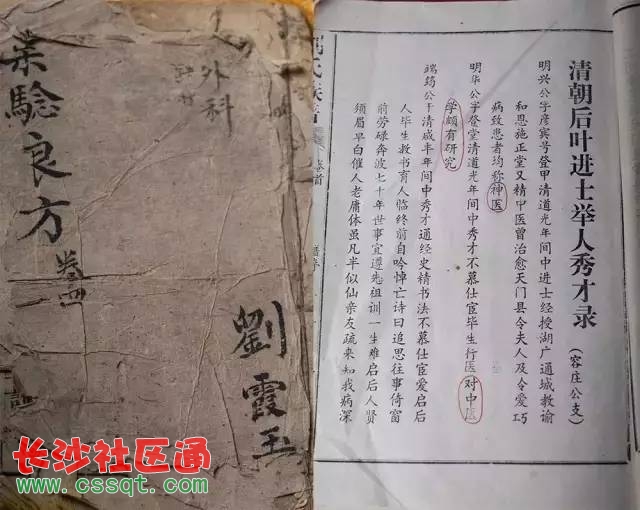 驗良方
卷四
外科
劉霞玉
清朝后叶进士举人秀才录
(容庄公支)
明兴公字彦宾号登甲清道光年间中进士经授湖广通城教谕
和恩施正堂又精中医曾治愈天门县令夫人及令爱巧
病致患者均称神医
明华公字登堂清道光年间中秀才不慕仕宦毕生行医对中医
学颇有研究
公于清咸丰年间中秀才通经史精书法不慕仕宦爱启后
人毕生教书育人临终前自吟悼亡诗曰追思往事倚窗
前劳碌奔波七十年世事宜遵先祖训一生难启后人贤
须眉早白催人老庸体虽凡半似仙亲友疏来知我病深
长沙社区通
www.cssqt.com